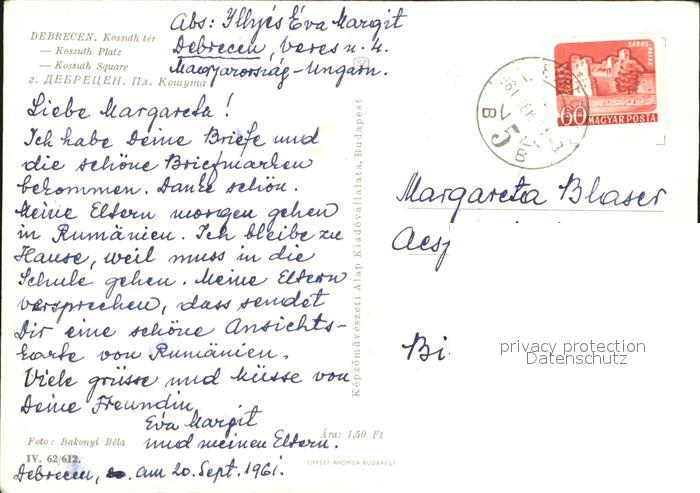 Abs: Illyés Éva Margit
Debrecen, Veres u. 4.
Magyarország-Ungarn.
DEBRECEN. Kossuth tér
— Kossuth Platz
— Kossuth Square
г. ДЕБРЕЦЕН. Пл. Кошута
Liebe Margareta!
Ich habe Deine Briefe und
die schöne Briefmarken
bekommen. Danke schön.
Meine Eltern morgen gehen
in Rumänien. Ich bleibe zu
Hause, weil muss in die
Schule gehen. Meine Eltern
versprechen, dass sendet
Dir eine schöne Ansichts-
karte von Rumänien.
Viele grüsse und Küsse von
Deine Freundin
Éva Margit
und meinen Eltern.
Foto: Bakonyi Béla
Ára: 1,50 Ft
IV. 62/612.
OFFSET-NYOMDA, BUDAPEST
Debrecen, am 20. Sept. 1961.
Képzőművészeti Alap Kiadóvállalata, Budapest
SÁROS-
PATAK
60
MAGYAR POSTA
Margareta Blaser
Aesj
Bi
privacy protection
Datenschutz